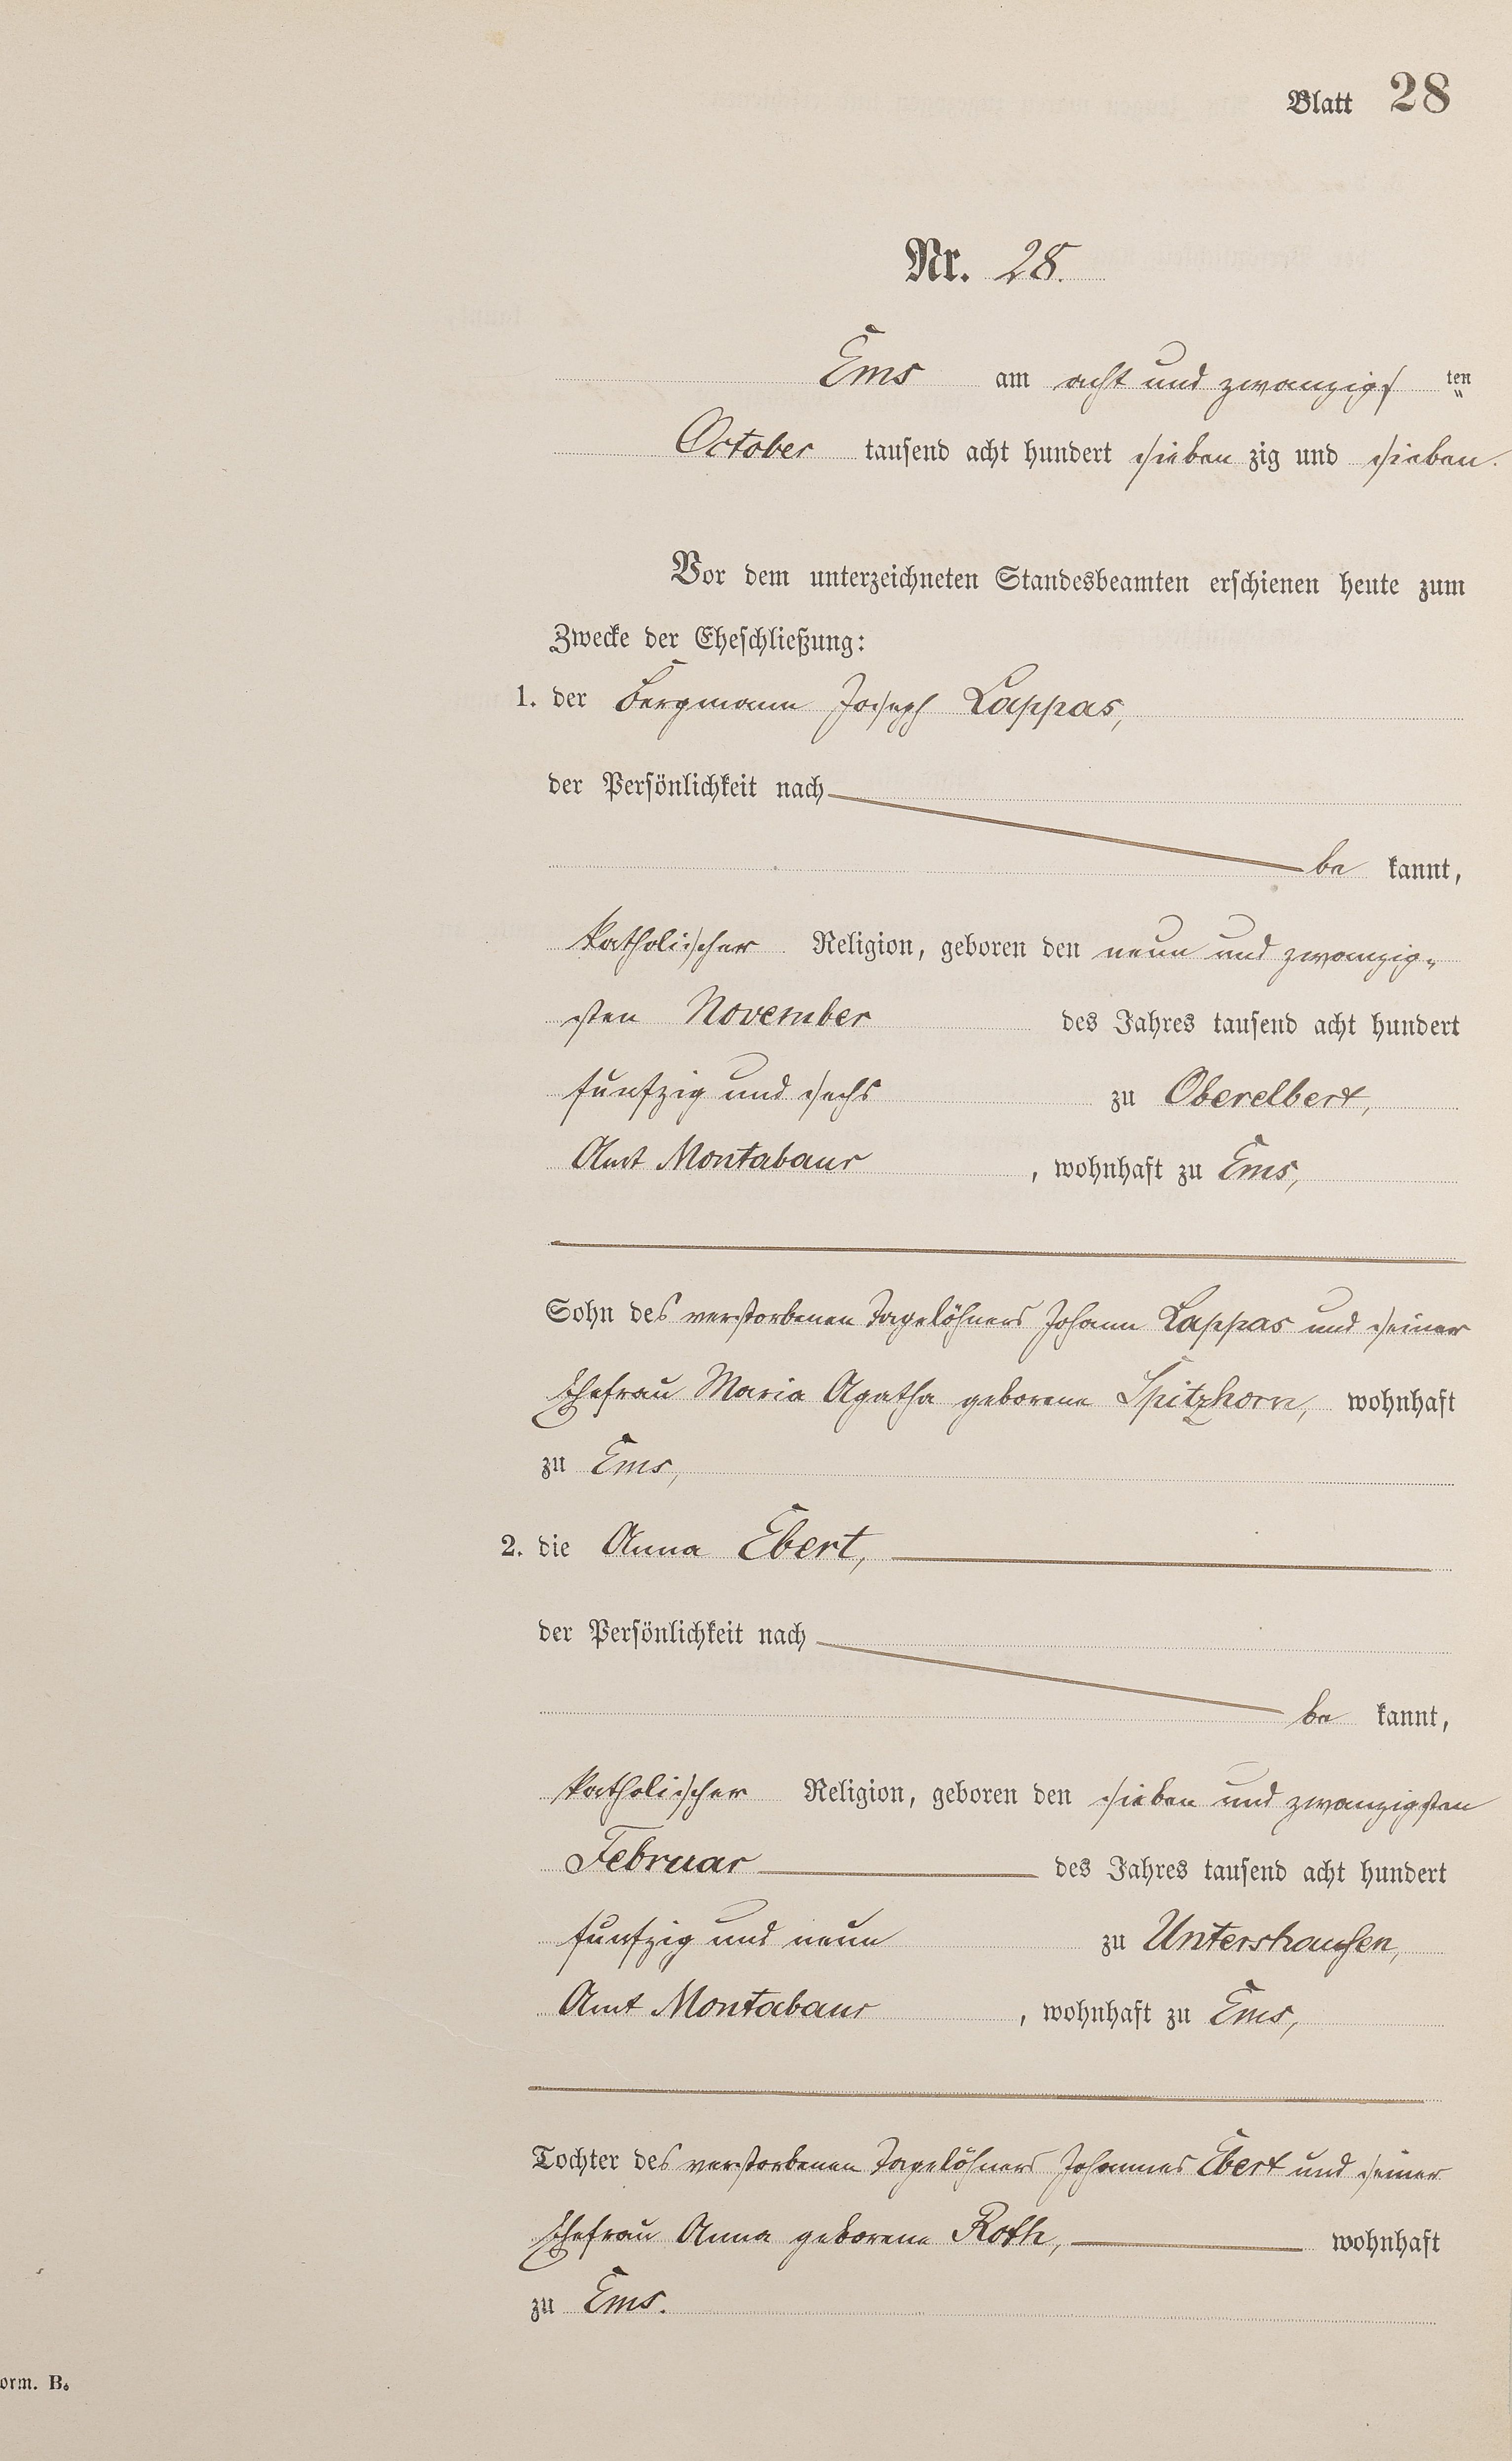 Blatt 28
Nr. 28.
Ems am acht und zwanzigs ten
October tausend acht hundert sieben zig und sieben.
Vor dem unterzeichneten Standesbeamten erschienen heute zum
Zwecke der Eheschließung:
1. der Bergmann Joseph Lappas,
der Persönlichkeit nach
be kannt,
katholischer Religion, geboren den neun und zwanzig-
sten November des Jahres tausend acht hundert
fünfzig und sechs zu Oberelbert,
Amt Montabaur, wohnhaft zu Ems,
Sohn des verstorbenen Tagelöhners Johann Lappas und seiner
Ehefrau Maria Agatha geborene Spitzhorn, wohnhaft
zu Ems,
2. die Anna Ebert,
der Persönlichkeit nach
be kannt,
katholischer Religion, geboren den sieben und zwanzigsten
Februar des Jahres tausend acht hundert
fünfzig und neun zu Untershausen,
Amt Montabaur, wohnhaft zu Ems,
Tochter des verstorbenen Tagelöhners Johannes Ebert und seiner
Ehefrau Anna geborene Roth, wohnhaft
zu Ems.
orm. B.